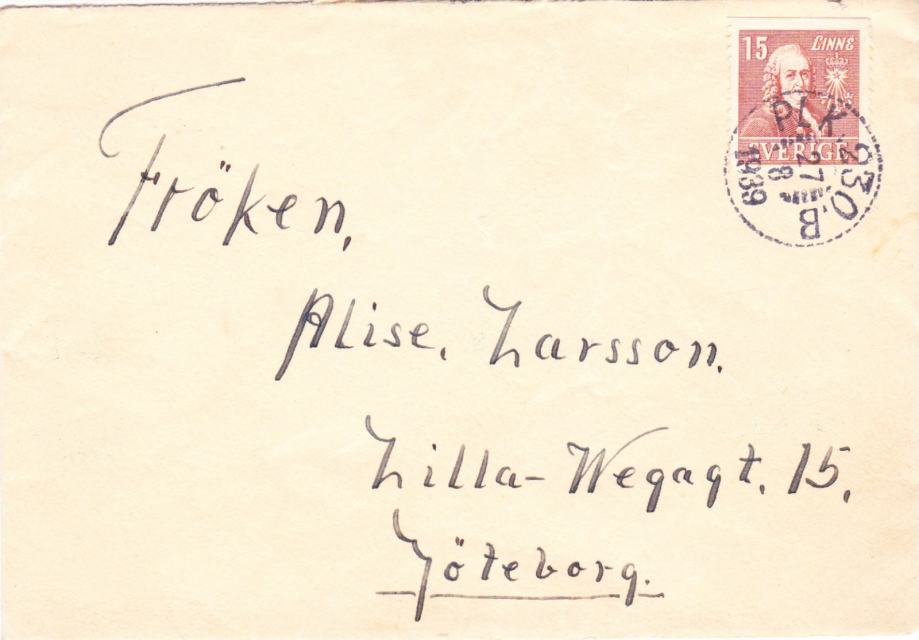 15 LINNÉ
SVERIGE
PLK. 230. B
27
8
1939
Fröken,
Alise. Larsson.
Lilla-Wegagt. 15.
Göteborg.